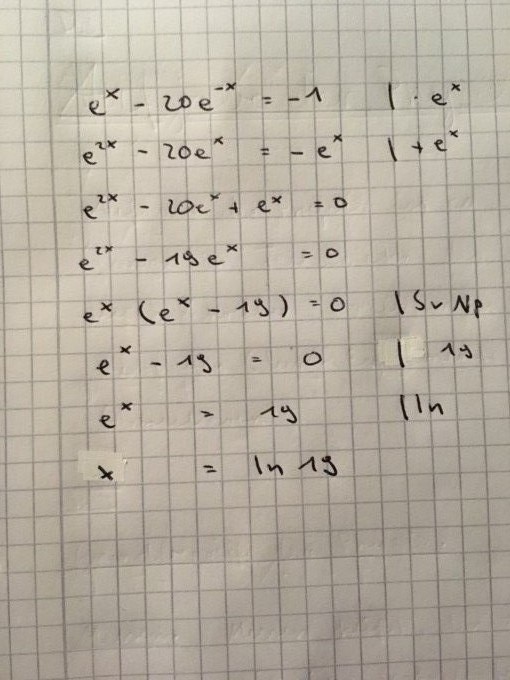 eˣ - 20e⁻ˣ = -1 | · eˣ
e²ˣ - 20eˣ = - eˣ | + eˣ
e²ˣ - 20eˣ + eˣ = 0
e²ˣ - 19eˣ = 0
eˣ (eˣ - 19) = 0 | Sv Np
eˣ - 19 = 0 | 19
eˣ = 19 | ln
x = ln 19